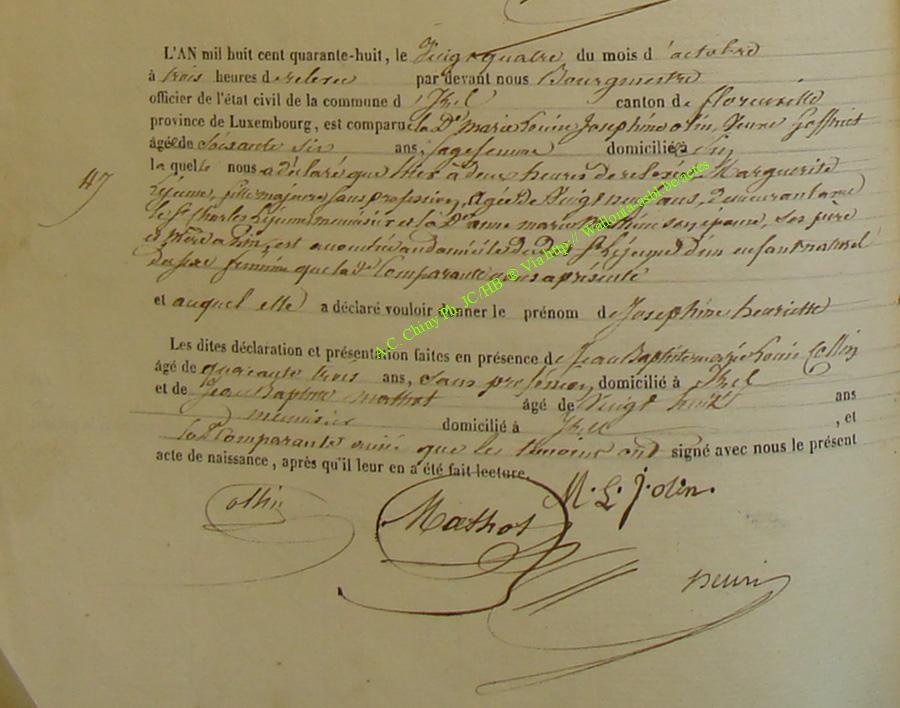 L'AN mil huit cent quarante-huit, le Vingt quatre du mois d'octobre
à trois heures de relevée par devant nous Bourgmestre
officier de l'état civil de la commune d'Izel canton de florenville
province de Luxembourg, est comparue la De marie Louise Josephine olin, Veuve
âgée de soisante six ans, sage femme domiciliée à Pin
47
la quelle nous a déclaré que hier à deux heures de relevée Marguerite
Lejeune, fille majeure sans profession, agée de Vingt neuf ans, demeurant avec
le Sr Charles Lejeune menuisier et la De anne marie son épouse, ses père
et mère à Pin, est accouchée au domicile du dit Sr Lejeune d'un enfant naturel
du sexe féminin que la De Comparante nous a présenté
et auquel elle a déclaré vouloir donner le prénom de Josephine henriette
Les dites déclaration et présentation faites en présence de Jean Baptiste marie Louis Collin
âgé de quarante trois ans, sans profession, domicilié à Izel
et de Jean Baptiste Mathot âgé de Vingt huit ans
menuisier domicilié à Izel , et
la De Comparante ainsi que les témoins ont signé avec nous le présent
acte de naissance, après qu'il leur en a été fait lecture.
Collin Mathot M. L. J. olin.
henri
A.C. Chiny Pu. JC /HB ® Via http:// Wallonia-asbl.be/actes